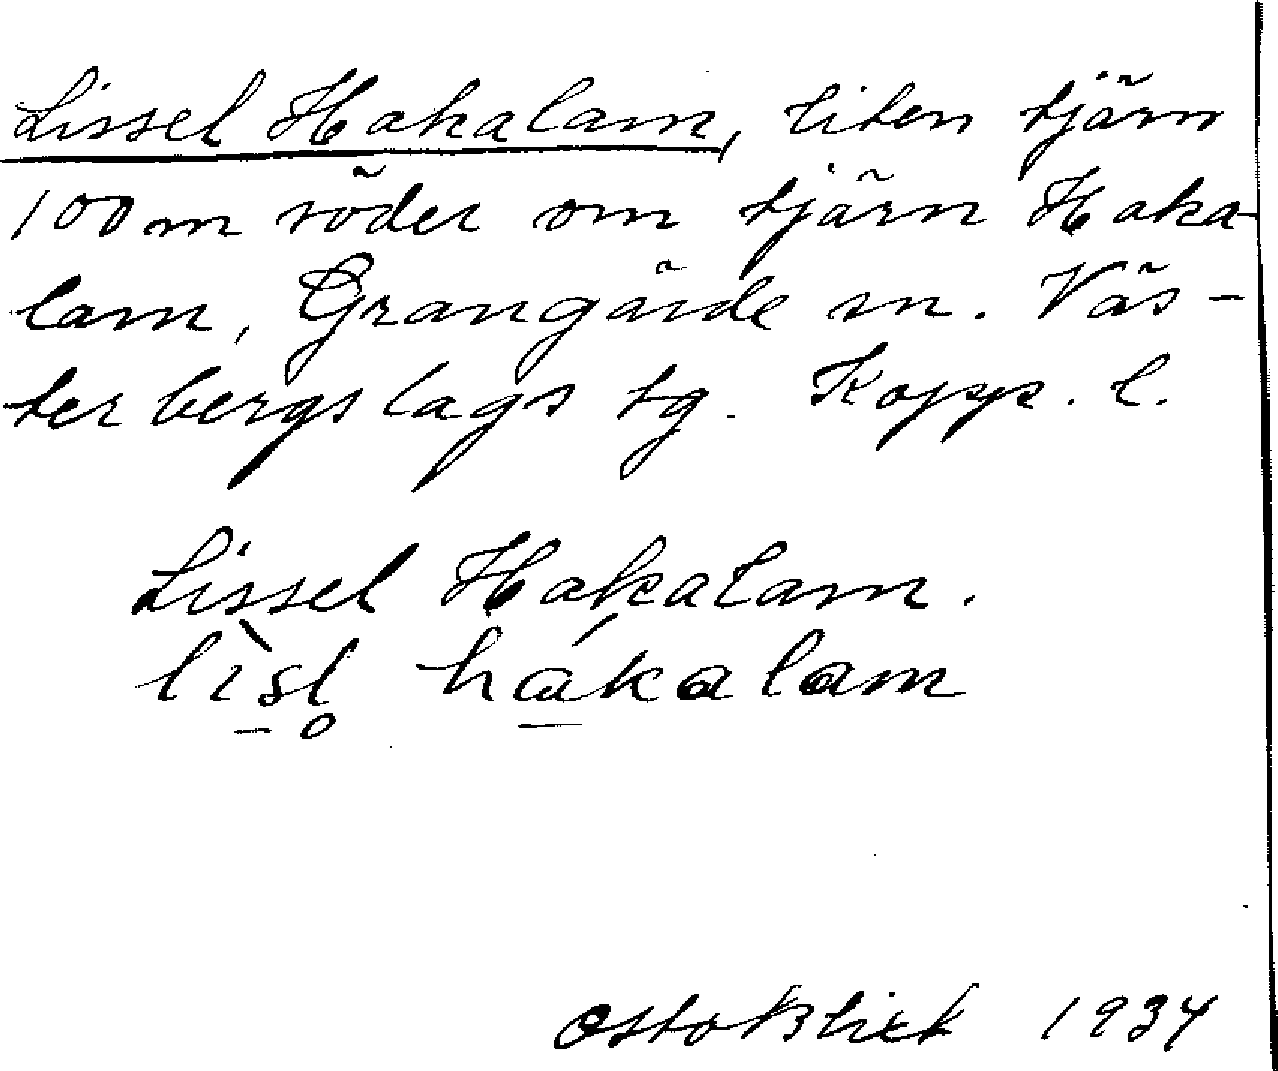 Lissel Hakalam, liten tjärn
100 m söder om tjärn Haka-
lam, Grangärde sn. Väs-
terbergslags tg. Kopp. l.
Lissel Hakalam.
lìsl̥ hákalam
Otto Blixt 1934